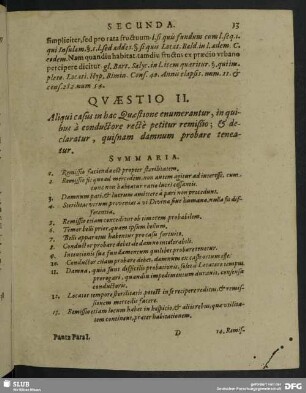 SECUNDA. 13
simpliciter, sed pro rata fructuum. l. si quis fundum cum l. sq. l.
qui Insulam. §. 1. l. sed addes. §. si quis Locat. Bald. in l. adem. C.
eodem. Nam quandiu habitat, tandiu fructus ex prædio urbano
percipere dicitur. gl. Bart. Salyc. in l. item quæritur. §. qui im-
pleto. Locati. Hyp. Rimin. Cons. 40. Annis elapsis. num. 11. &
cons. 212. num 54.
QVÆSTIO II.
Aliqui casus in hac Quæstione enumerantur, in qui-
bus à conductore rectè petitur remissio; & de-
claratur, quisnam damnum probare tenea-
tur.
SVMMARIA.
1. Remissio facienda est propter sterilitatem.
2. Remissio fit quoad mercedem, non autem agitur ad interesse, cum
tunc non habeatur ratio lucri cessantis.
3. Damnum pati, & lucrum amittere à pari non procedunt.
4. Sterilitas utrum proveniat à vi Divina sive humana, nulla fit dif-
ferentia.
5. Remissio etiam conceditur ob timorem probabilem.
6. Timor belli prior, quam ipsum bellum.
7. Belli apparatus habentur pro casu fortuito.
8. Conductor probare debet de damno intolerabili.
9. Intentionis suæ fundamentum quilibet probare tenetur.
10. Conductor etiam probare debet, damnum ex casu ortum esse.
11. Damna, quia suis difficilis probationis, solet à Locatore tempus
prorogari, quamdiu impedimentum duravit, conjensu
conductoris.
12. Locator tempore sterilitatis potest in se recipere reditus, & remis-
sionem mercedis facere.
13. Remissio etiam locum habet in hospitio, & aliis rebus, quæ utilita-
tem continent, præter habitationem.
Pancz Pars I. D 14. Remis-
SLUB
DFG